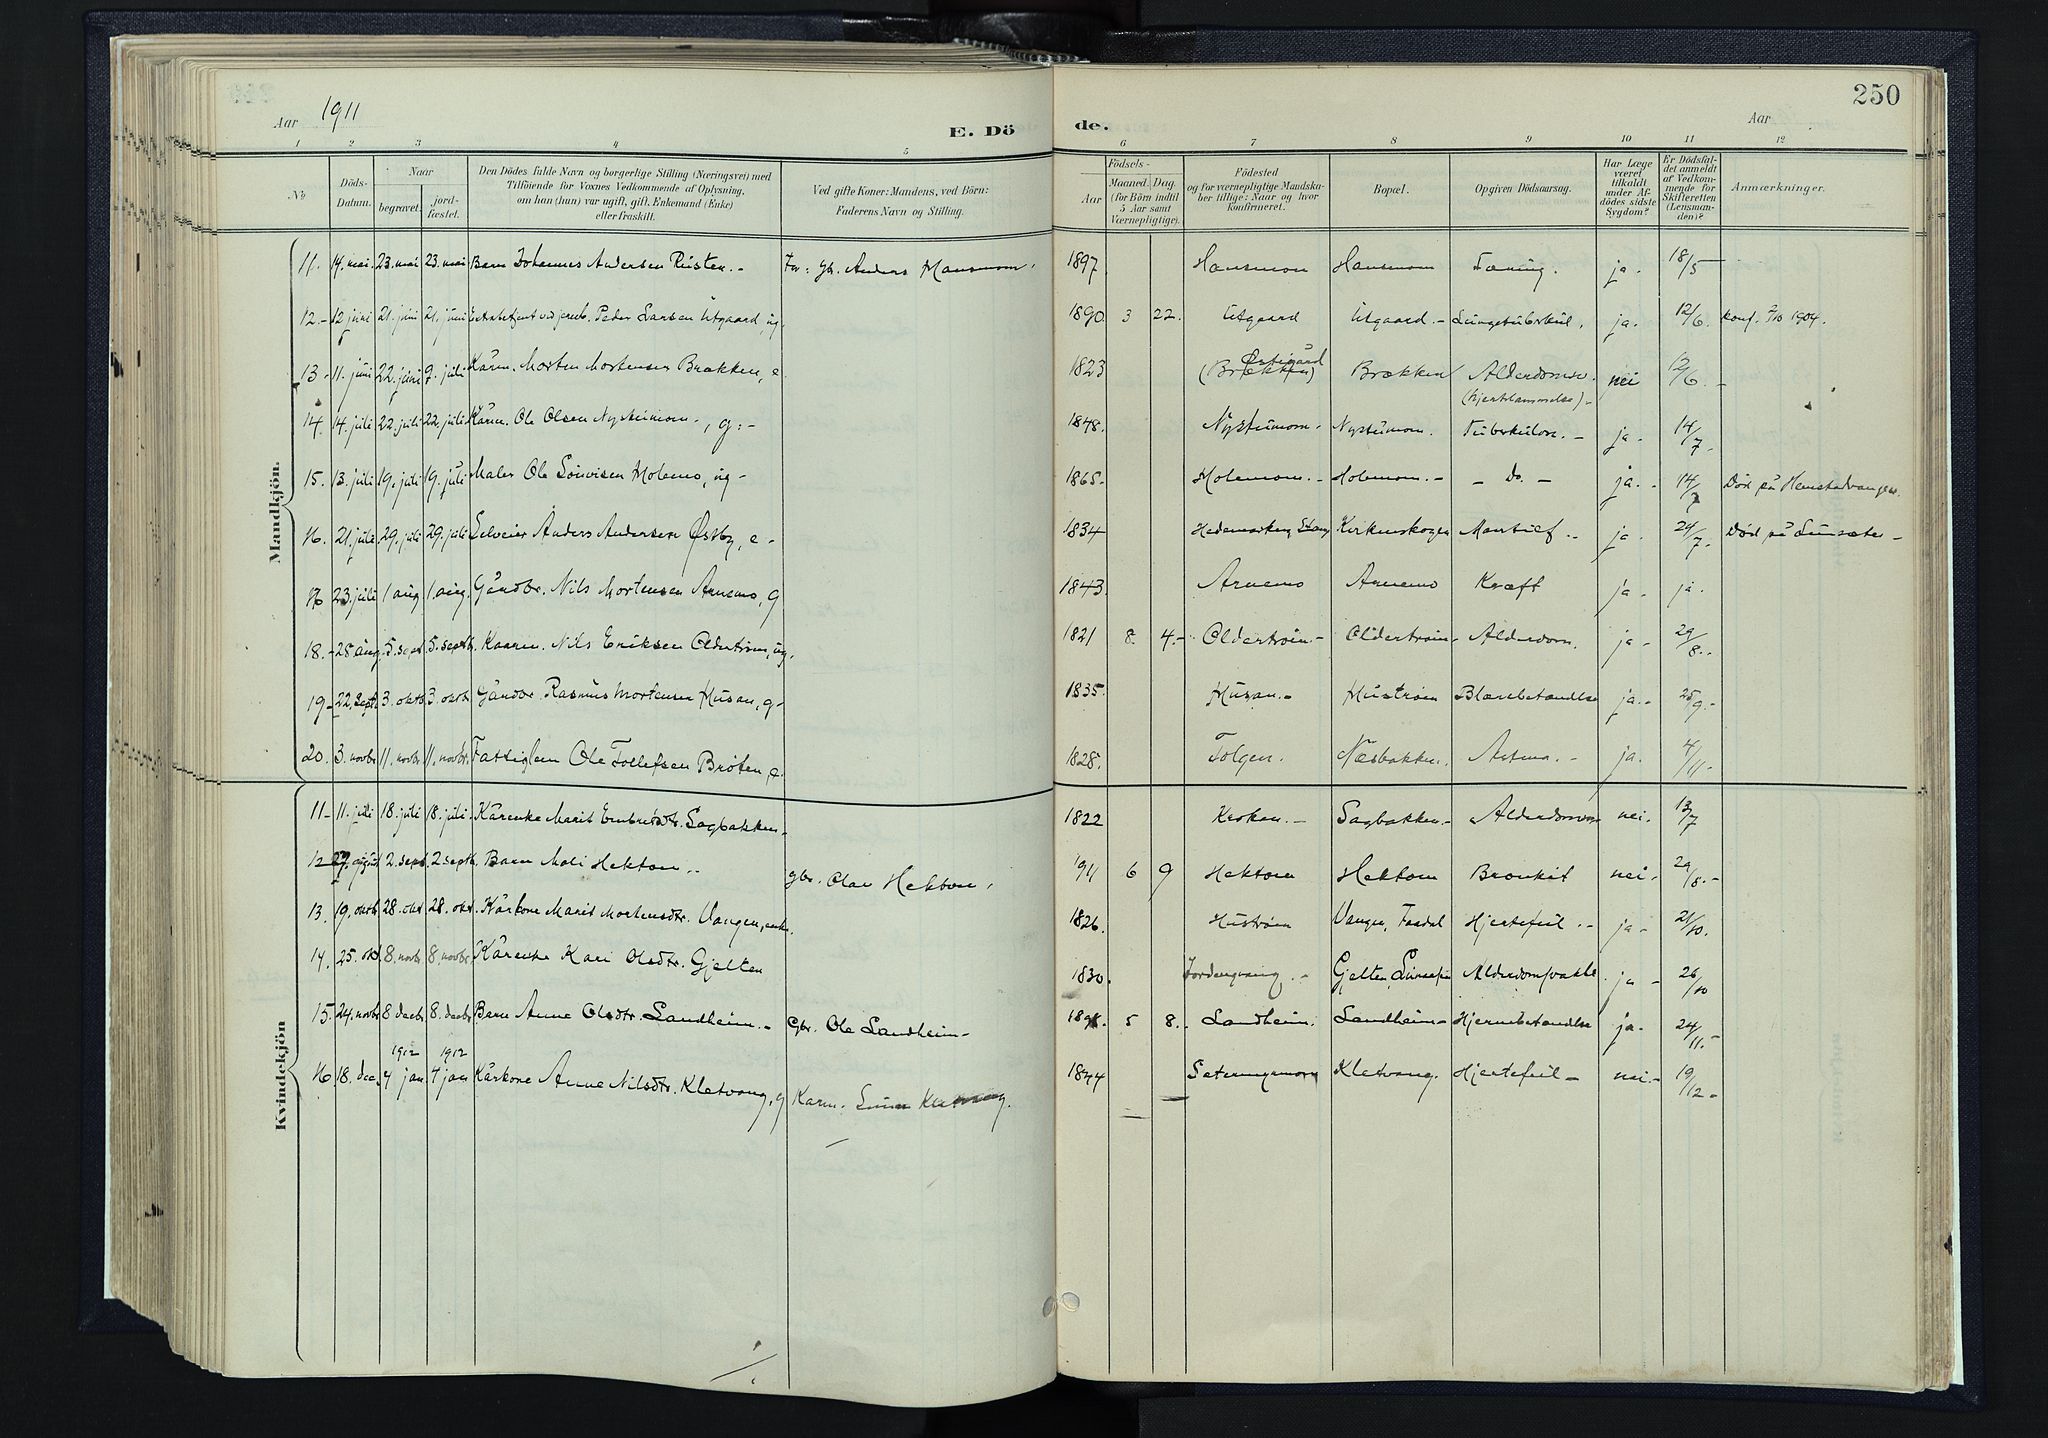 250
Aar 1911
E. Dö de.
Aar
1 2 3 4 5 6 7 8 9 10 11 12
№
Döds-Datum.
Naar
begravet.
jord-fæstet.
Den Dödes fulde Navn og borgerlige Stilling (Næringsvei) med
Tilföiende for Voxnes Vedkommende af Oplysning,
om han (hun) var ugift, gift, Enkemand (Enke)
eller fraskilt.
Ved gifte Koner: Mandens, ved Börn:
Faderens Navn og Stilling.
Födsels-
Aar
Maaned. Dag.
(for Börn indtil
5 Aar samt
Værnepligtige).
Födested
og for værnepligtige Mandska-
ber tillige: Naar og hvor
konfirmeret.
Bopæl.
Opgiven Dödsaarsag.
Har Læge
været
tilkaldt
under Af-
dödes sidste
Sygdom?
Er Dödsfal-
det anmeldt
af Vedkom-
mende for
Skifteretten
(Lensman-
den)?
Anmærkninger.
Mandkjön.
11. 14. mai. 23. mai 23. mai Barn Johannes Andersen Rusten.- Far: gb. Anders Hansmom. 1897 Hansmom Hansmom Tæring. ja. 18/5
12.- 12 juni 21. juni 21. juni Peder Larsen Utgaard, ug. 1890. 3 22. Utgaard Utgaard.- Lungetuberkul. ja. 12/6. konf. 2/10 1904.
13- 11. juni 22. juni 9. juli Kårm. Morten Mortensen Brækken, e. 1823 Østigård (Brækken) Brækken Alderdomsv. (hjertelammelse).- nei 12/6.-
14. 14. juli 22. juli 22. juli Kårm. Ole Olsen Nystumom., g:- 1848. Nystumom. Nystumom. Tuberkulos.- ja- 14/7.
15. 13. juli 19. juli 19. juli Maler Ole Simesen Holemo, ug- 1865. Holemom.- Holemom.- - Do.- ja.- 14/7 Død på Hemstadvangen.
16. 21. juli 29. juli 29. juli Selveier Anders Andersen Østby, e- 1834 Hedemarken, Stang Kirkenskogen ja- 24/7. Død på
16 23. juli 1 aug 1. aug. Gårdbr. Nils Mortensen Arnemo, g 1843. Arnemo Arnemo Kræft ja- ja.
18.- 28 aug. 5. sept. 5. septb. Kaarm. Nils Eriksen Oldertrøin, ug. 1821 8. 4.- Oldertrøin- Oldertrøin- Alderdom. ja- 29/8..
19- 22. Sept. 3. oktb. 3 oktb. Gårdbr. Rasmus Mortensen Husan, g- 1835. Husan.- Hustrøen Blærebetændelse ja.- 25/9.-
20. 3. novbr. 11. novbr. 11. novbr. Fattiglem Ole Tollefsen Brøten, e. 1828. Tolgen. Næsbakken. Astma.- ja. 4/11-
Kvindekjön
11- 11. juli 18. juli 18. juli. Kårenke Marit Embretsdtr. Sagbakken- 1822 Krokan.- Sagbakken.- Alderdomsv nei. 13/7
12 27. august 2. sept. 2 septb. Barn Mali Hektoen.. gbr. Olav Hektoen. 1911 6 9 Hektoen Hektoen Bronkit nei. 29/8.-
13. 19. oktb. 28. okt 28. okt. Kårkone Marit Mortensdtr. Vangen, enke. 1826. Hustrøen Vangen, Faadal Hjertefeil.- ja- 21/10.
14. 25. okt 8. novbr. 8. novbr. Kårenke Kari Olsdtr. Gjelten 1830. Jordengvang.- Gjelten, Alderdomsvakke. ja- 26/10
15. 24. novbr 8 decbr 8. decbr. Barn Anne Olsdtr. Landheim.- Gbr. Ole Landheim- 5 8.. Landheim. Landheim- Hjernebetændelse ja- 24/11.-
16 18. dec. 1912 4 jan 1912 4 jan Kårkone Anne Nilsdtr. Kletvang, g Karm. Simen Kletvang. 1844 Kletvang. Hjertefeil- nei.- 19/12-